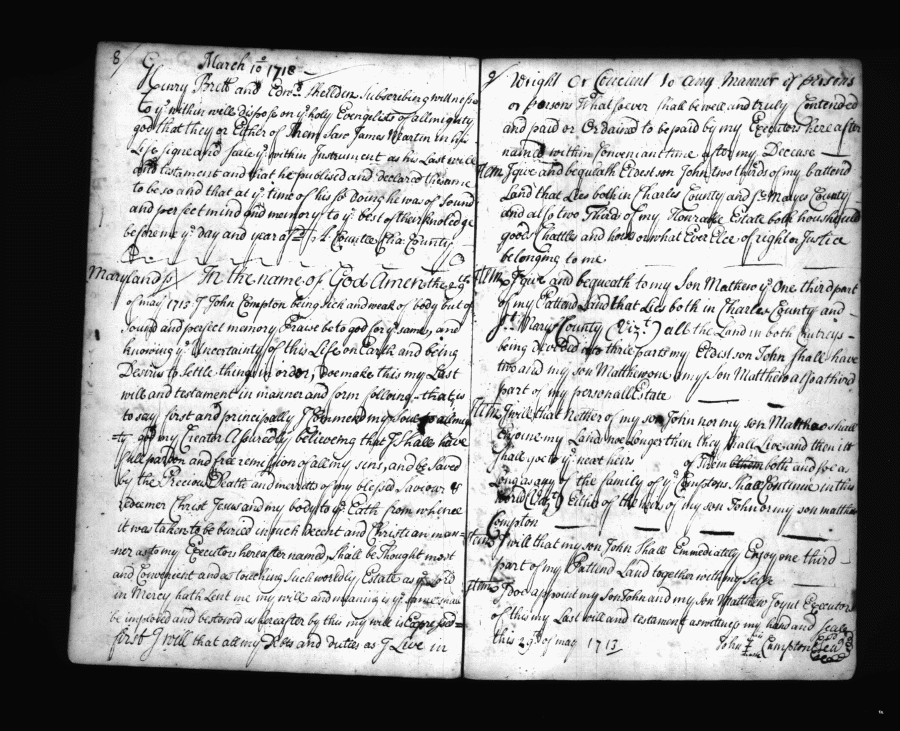 8/
March 10th 1718
Henry Brett and Edwd Shellden Subscribing willnesses
to ye within will dispose on ye holy Evengelists of allmighty
god that they or Either of them saw James Martin in his
Life signe and seale ye within Instrument as his Last will
and testament and that he publised and declared the same
to be so and that at ye time of his so Doing he was of Sound
and perfect mind and memory to ye best of their knoledge
before me ye day and year
Maryland ss In the name of God Amen the 29th
of may 1713 I John Compton being Sick and weak of body but of
Sound and perfect memory Praise be to god for ye same, and
knowing ye Uncertainty of this Life on Earth and being
Desirus to Settle things in order, Doe make this my Last
will and testament in manner and form follwing that is
to say first and principally I Commend my Soule to allmigh
ty god my Creator Assuredly believeing that I shall have
full pardon and free remission of all my sins, and be Saved
by the Precious Death and merratts of my blessed Saviour &
redeemer Christ Jesus and my body to ye Earth from whence
it was taken to be buried in such Decent and Christian man=
=ner as to my Executors hereafter named, Shall be thought most
and Convenient and as touching Such worldly Estate as ye Lord
in Mercy hath Lent me my will and meaning is ye same shall
be imployed and bestowed as hereafter by this my will is Expressed=
first I will that all my Debts and duties as I Live in
9/ Wright Or Conceint to any manner of persons
or person Whatsoever shall be well and truly Contended
and paid or Ordained to be paid by my Executors hereafter
named within Convenient time after my Decease
Item I give and bequeath Eldest son John two thirds of my pattend
Land that Lies both in Charles County and St Maryes County
and also two Thirds of my Estate both houshould
goods Chattles and or what Ever Else of right or Justice
belonging to me
Item I give and bequeath to my Son Mathew ye One third part
of my Pattend Land that Lies both in Charles County and
St Marys County (Viz:) all the Land in both Cuntreys
being devided into three parts my Eldest son John shall have
two and my son Matthew one & my Son Matthew also a third
part of my personall Estate
Item I will that Nether of my son John nor my son Matthew shall
Enjoy my Land noe Longer then they shall Live and then itt
shall goe to ye next heirs of them both and soe a
Long as any of the family of ye Comptons Shall Continue in this
world Either of the heirs of my son John or my son matthew
Compton
Item I will that my son John shall Emmediatly Enjoy one third
part of my Pattend Land together with my Seat
Item I Doe appoint my Son John and my Son Matthew Joynt Executors
of this my Last will and testament as wittness my hand and seale
this 29th of may 1713
John Compton Seal